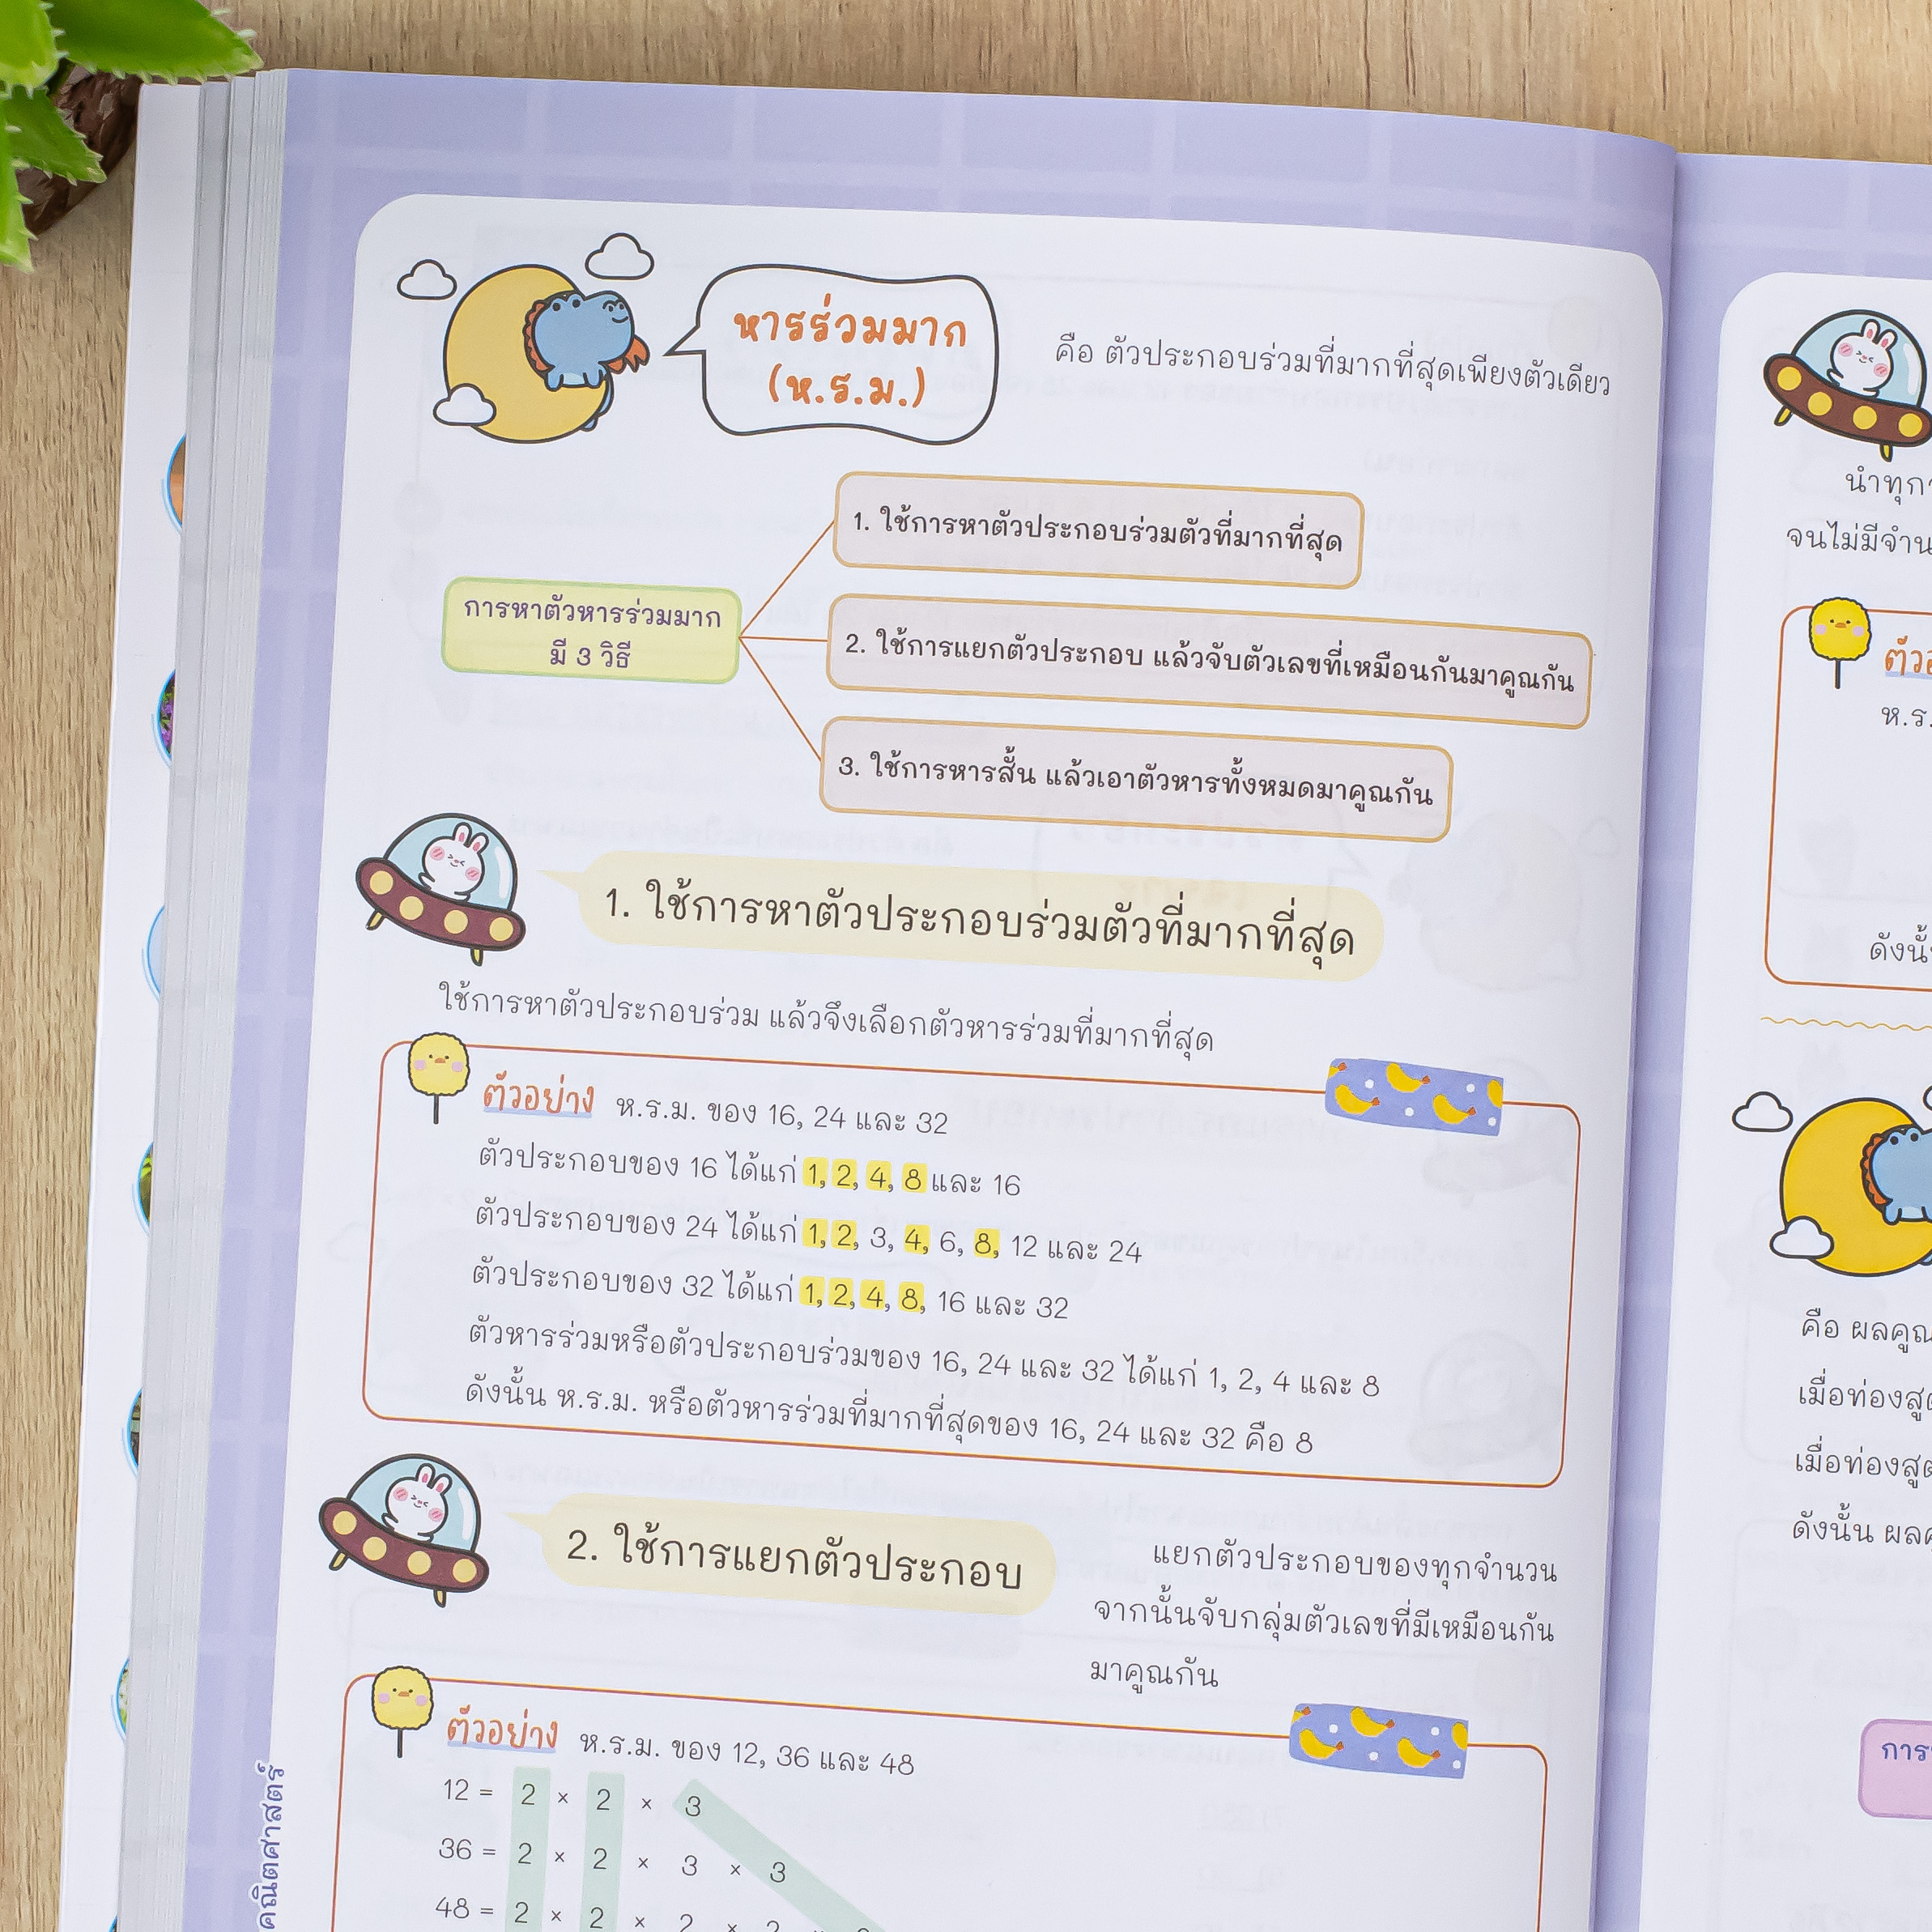 หารร่วมมาก
(ห.ร.ม.)
คือ ตัวประกอบร่วมที่มากที่สุดเพียงตัวเดียว
การหาตัวหารร่วมมาก
มี 3 วิธี
1. ใช้การหาตัวประกอบร่วมตัวที่มากที่สุด
2. ใช้การแยกตัวประกอบ แล้วจับตัวเลขที่เหมือนกันมาคูณกัน
3. ใช้การหารสั้น แล้วเอาตัวหารทั้งหมดมาคูณกัน
1. ใช้การหาตัวประกอบร่วมตัวที่มากที่สุด
ใช้การหาตัวประกอบร่วม แล้วจึงเลือกตัวหารร่วมที่มากที่สุด
ตัวอย่าง ห.ร.ม. ของ 16, 24 และ 32
ตัวประกอบของ 16 ได้แก่ 1, 2, 4, 8 และ 16
ตัวประกอบของ 24 ได้แก่ 1, 2, 3, 4, 6, 8, 12 และ 24
ตัวประกอบของ 32 ได้แก่ 1, 2, 4, 8, 16 และ 32
ตัวหารร่วมหรือตัวประกอบร่วมของ 16, 24 และ 32 ได้แก่ 1, 2, 4 และ 8
ดังนั้น ห.ร.ม. หรือตัวหารร่วมที่มากที่สุดของ 16, 24 และ 32 คือ 8
2. ใช้การแยกตัวประกอบ
แยกตัวประกอบของทุกจำนวน
จากนั้นจับกลุ่มตัวเลขที่มีเหมือนกัน
มาคูณกัน
ตัวอย่าง ห.ร.ม. ของ 12, 36 และ 48
12 = 2 × 2 × 3
36 = 2 × 2 × 3 × 3
48 = 2 × 2 × 2 × 2
คณิตศาสตร์
นำทุก
จนไม่มี
ห.ร.
ดังนั้น
คือ ผลคูณ
เมื่อท่อง
เมื่อท่อง
ดังนั้น
การ